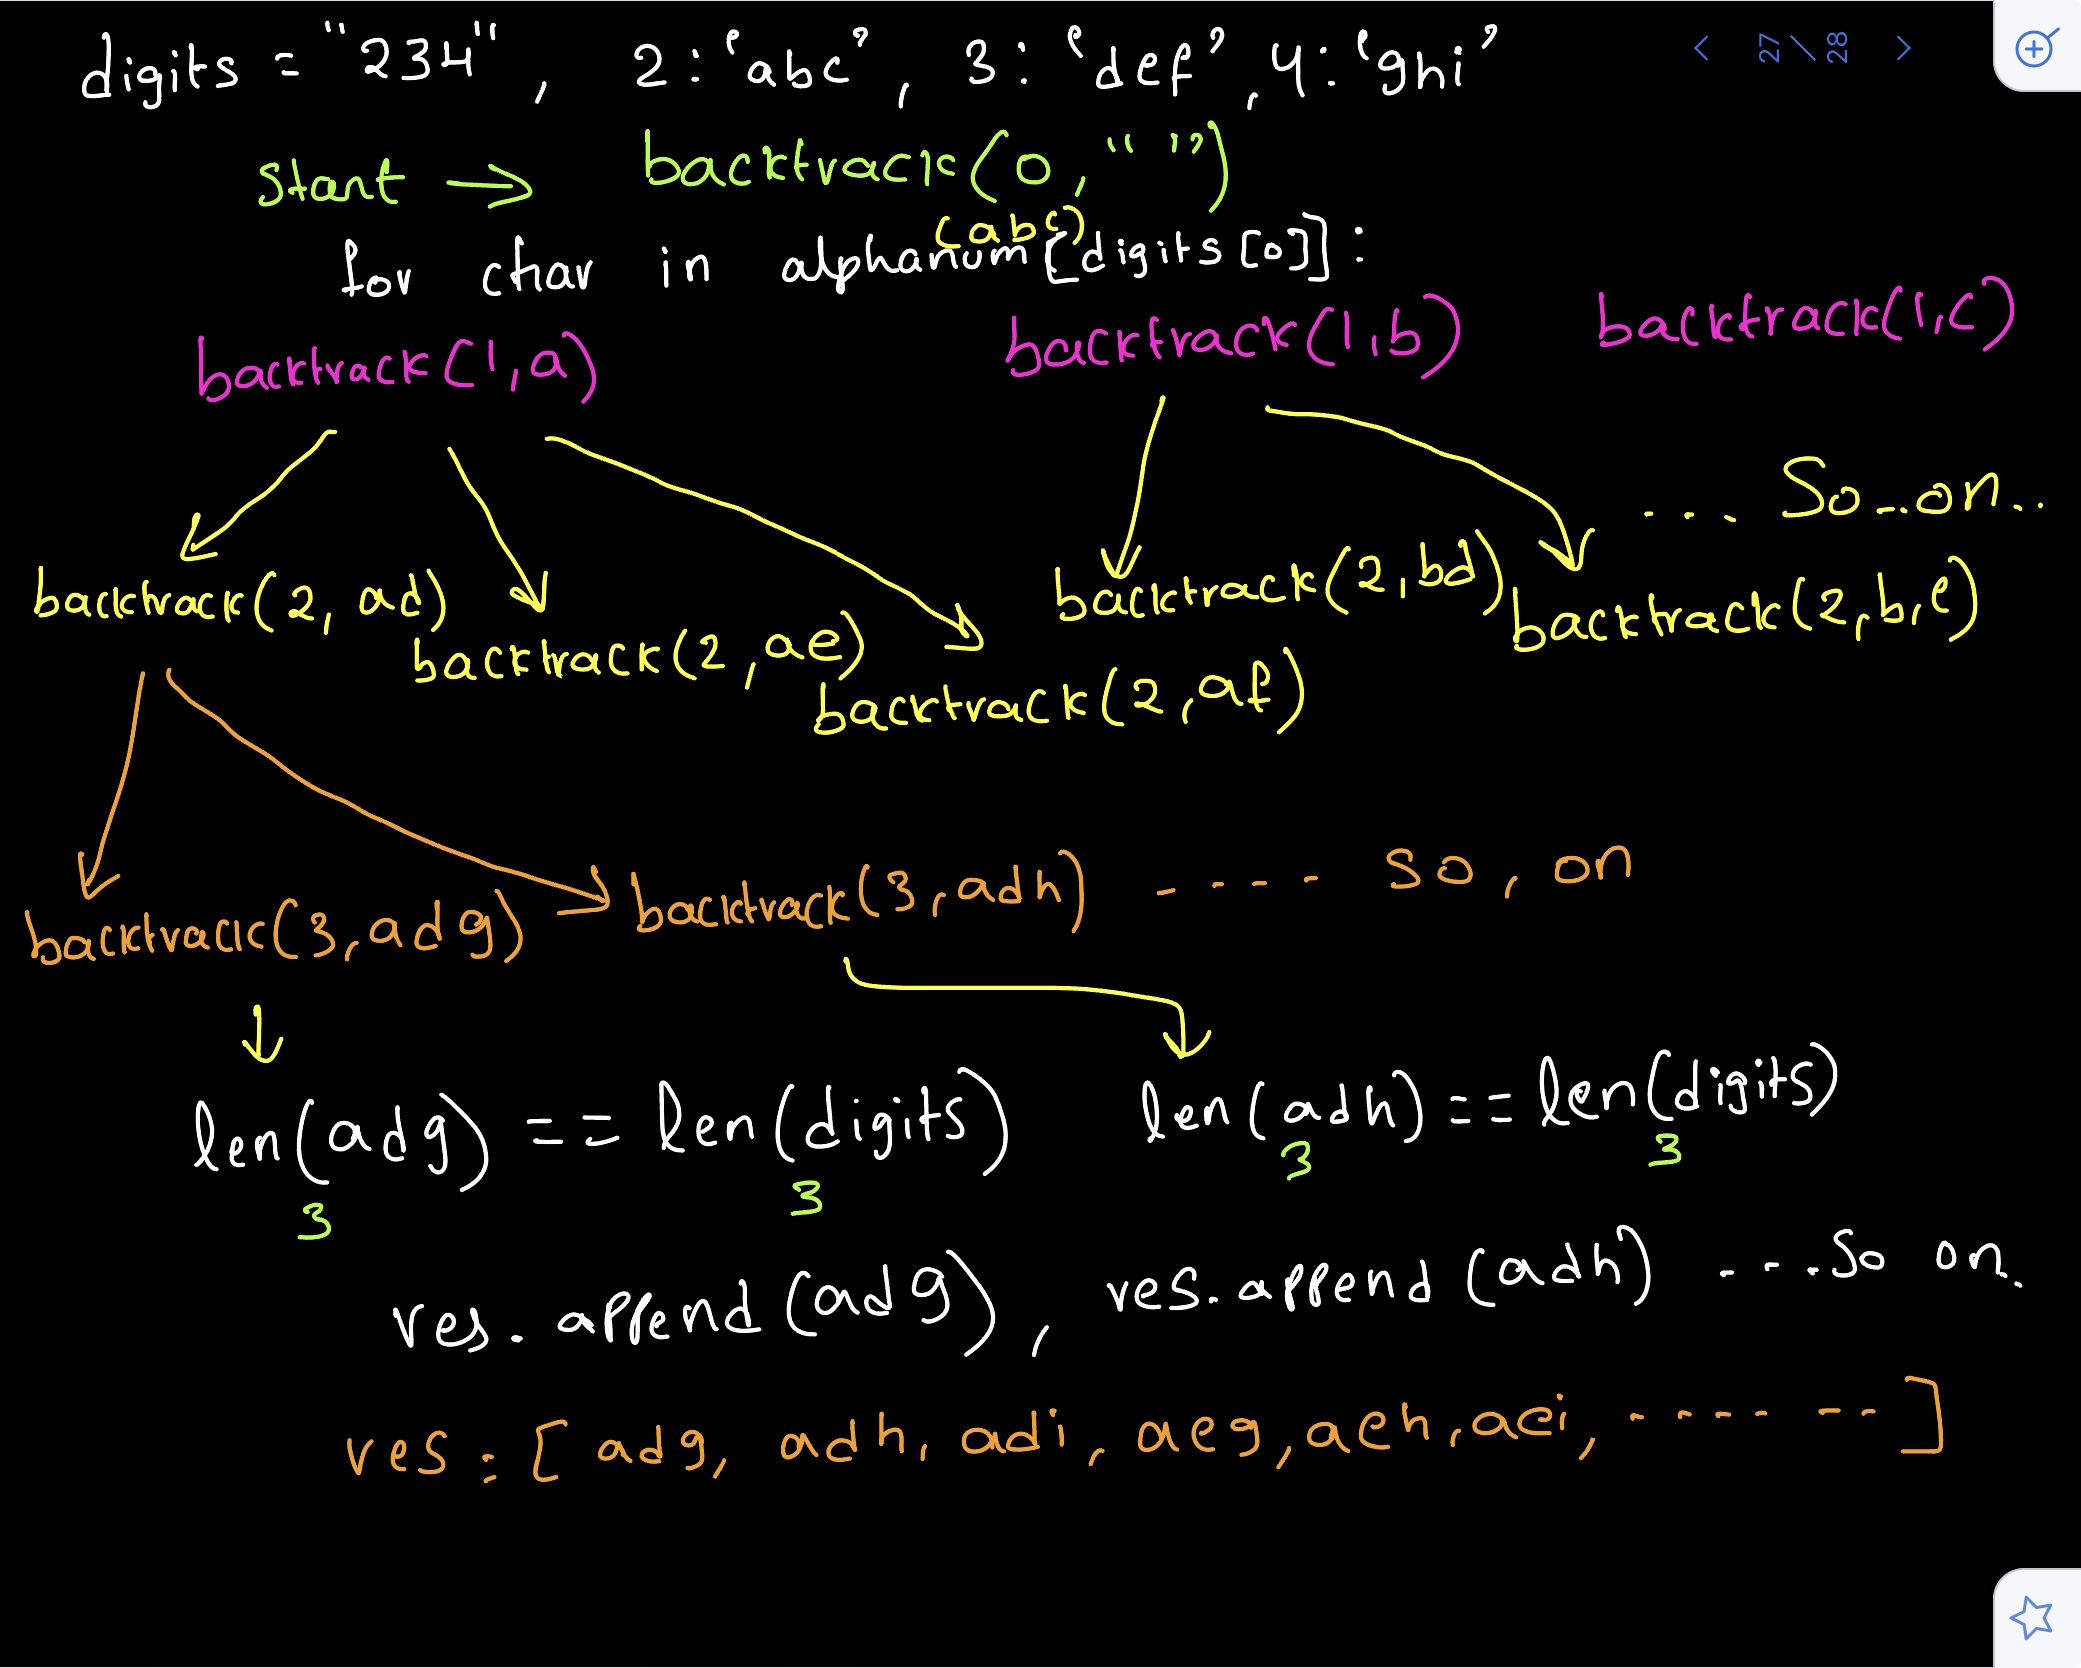 digits = "234", 2: 'abc', 3: 'def', 4: 'ghi'
27 / 28
start → backtrack(0, " ")
(abc)
for char in alphanum[digits[0]]:
backtrack(1,a) backtrack(1,b) backtrack(1,c)
... So...on..
backtrack(2, ad) backtrack(2, ae) backtrack(2, af) backtrack(2, bd) backtrack(2, b, e)
backtrack(3, adg) backtrack(3, adh) ---- so, on
len(adg) == len(digits) len(adh) == len(digits)
3 3 3 3
res. append (adg), res. append (adh) ...So on.
res = [ adg, adh, adi, aeg, aeh, aei, ---- -- ]